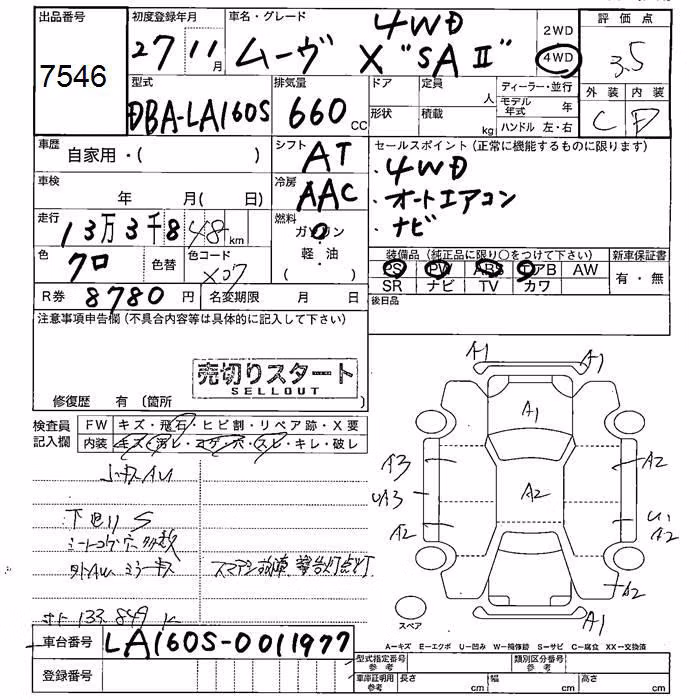 出品番号
7546
初度登録年月
27 11月
車名・グレード
4WD
ムーヴ X "SAⅡ"
2WD
4WD
評価点
3.5
外装 内装
C D
型式
DBA-LA160S
排気量
660 CC
ドア 定員 人
形状 積載 kg
ディーラー・並行
モデル年式 年
ハンドル 左・右
車歴
自家用・( )
シフト
AT
セールスポイント(正常に機能するものに限ります)
・4WD
・オートエアコン
・ナビ
車検
年 月( 日)
冷房
AAC
走行
13万3千848 km
燃料
ガソリン
・
軽・油
( )
色
クロ
色替
色コード
X07
装備品(純正品に限り〇をつけて下さい)
PS PW ABS エアB AW
SR ナビ TV カワ
新車保証書
有・無
R券 8780 円
名変期限 月 日
後日品
注意事項申告欄(不具合内容等は具体的に記入して下さい)
売切りスタート
SELLOUT
修復歴 有(箇所 )
検査員
記入欄
FW キズ・飛石・ヒビ割・リペア跡・X要
内装 キズ・汚レ・コゲ・穴・スレ・キレ・破レ
S
シートコゲ穴多数
警告灯点灯
133,849 K
A1
A1
A1
A3
A2
UA3
A2
A2
U1
A2
A2
A1
スペア
A−キズ E−エクボ U−凹み W−補修跡 S−サビ C−腐食 XX−交換済
車台番号 LA160S-0011977
登録番号
型式指定番号
参考
類別区分番号
参考
車庫証明用
参考
長さ cm 幅 cm 高さ cm